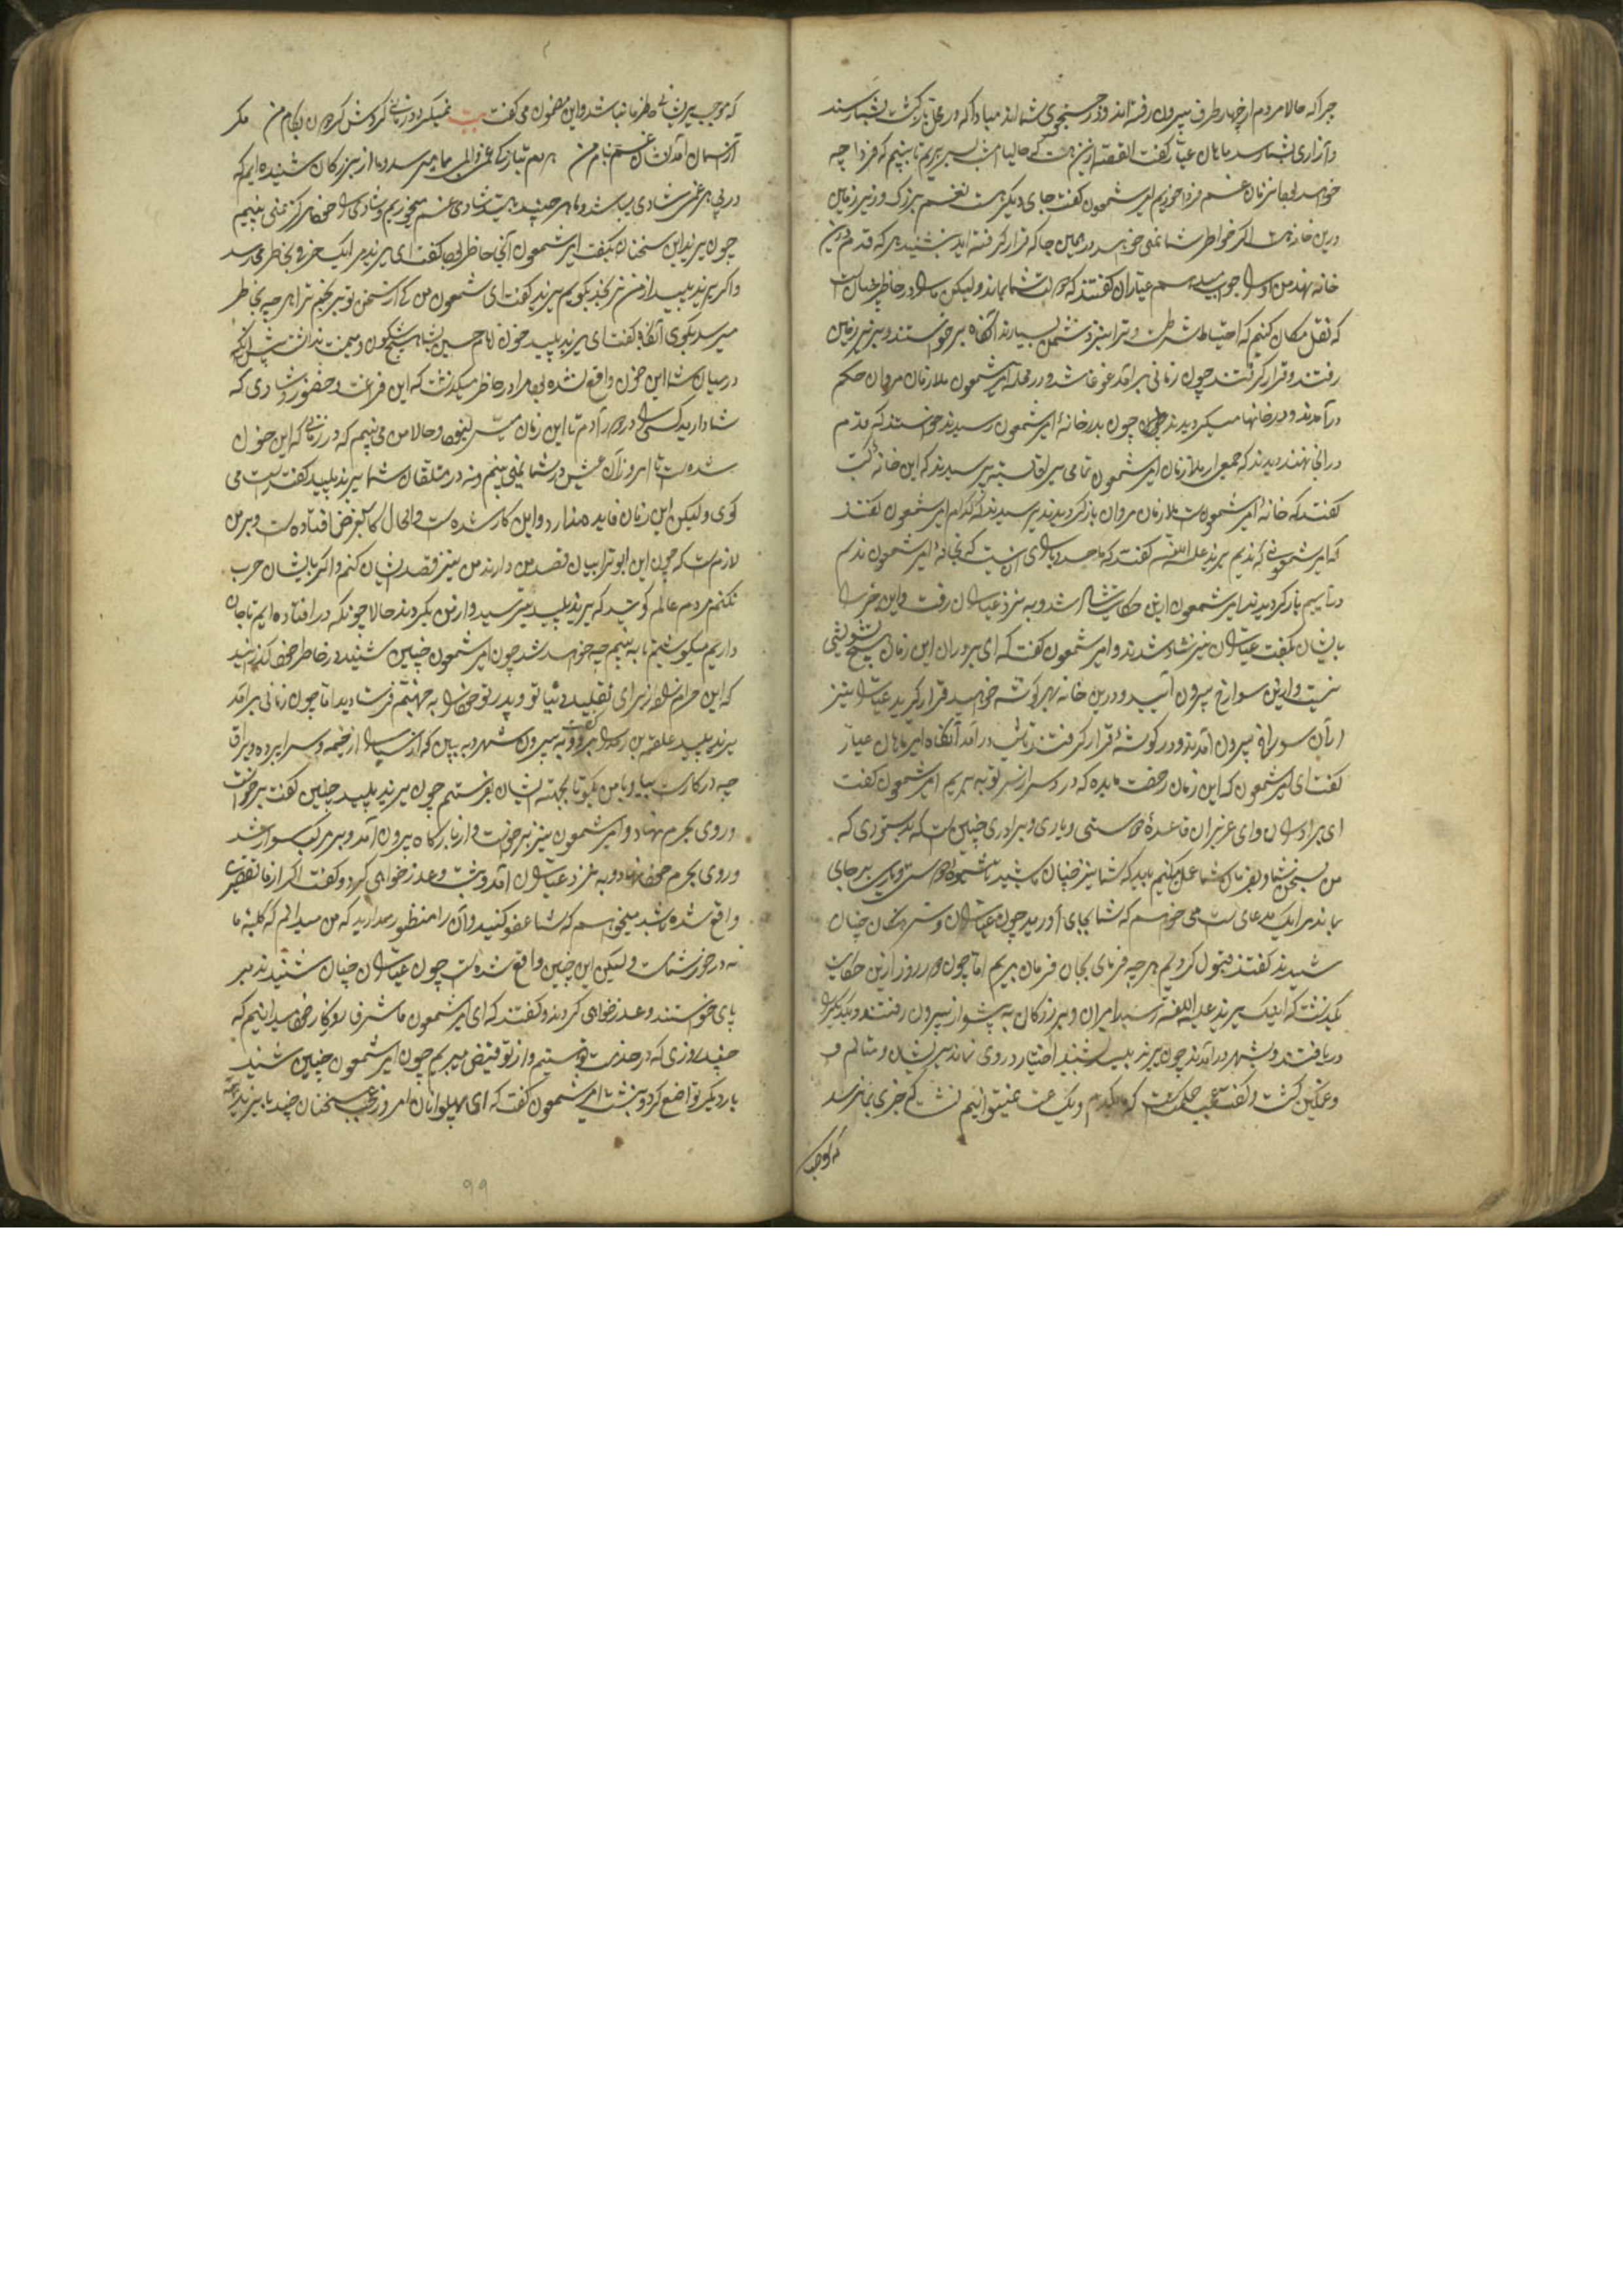 چرا که حالا مردم از چهار طرف بیرون رفته‌اند و در جستجوی شمااند مبادا که در محل بازگشت بشما رسند
و آزاری بشما رسد ماهان عیار گفت القصه ازین هست که حالیا شب بسر بریم تا ببینیم که فردا چه
خواهد بود این زمان غم فردا خوریم امیر شمعون گفت جای دیگر هست نغم بزرگ و زیر زمین
درین خانه است اگر خواطر شما نمی‌خواهد در همین جا که قرار گرفته‌اید بنشینید هر که قدم درین
خانه نهد من او را جواب میدهم عیاران گفتند که دولت شما بماند ولیکن ما را در خاطر چنان است
که نقل مکان کنیم که احتیاط شرط است و ترا نیز دشمن بسیارند آنگاه برخواستند و بزیر زمین
رفتند و قرار گرفتند چون زمانی برآمد غوغا شد و در محله امیر شمعون ملازمان مروان حکم
درآمدند و در خانها میگردیدند چون بدر خانهٔ امیر شمعون رسیدند خواستند که قدم
در آنجا نهند دیدند که جمعی از ملازمان امیر شمعون تمامی یراق بسته پرسیدند که این خانهٔ کیست
گفتند که خانهٔ امیر شمعونست ملازمان مروان باز گردیدند پرسیدند که کدام امیر شمعون گفتند
که امیر شمعونی که ندیم یزید علیه اللعنه گفتند که ما حد و یارای آن نیست که بخانهٔ امیر شمعون ندیم
درآییم باز گردیدند امیر شمعون ازین حکایت شاد شد و به نزد عیاران رفت و این خبر را
بایشان بگفت عیاران نیز شاد شدند و امیر شمعون گفت که ای برادران این زمان هیچ تشویشی
نیست و ازین سوراخ بیرون آئید و درین خانه بهر گوشه خواهید قرار گیرید عیاران نیز
از آن سوراخ بیرون آمدند و در گوشهٔ قرار گرفتند تا شب درآمد آنگاه امیر ماهان عیار
گفت ای امیر شمعون که این زمان رخصت ما بده که درد سر از سر تو به بریم امیر شمعون گفت
ای برادران و ای عزیزان قاعدهٔ دوستی و یاری و برادری چنین است که بدستوری که
من بسخن شما و بفرمان شما عمل میکنم باید که شما نیز چنان باشید تا شیوهٔ دوستی و یاری بر جای
بماند مرا یک مدعای است می‌خواهم که شما بجای آورید چون عیاران و سرهنگان چنان
شنیدند گفتند قبول کردیم هر چه فرمای بجان فرمان بریم اما چون دو روز ازین حکایت
بگذشت که اینک یزید علیه اللعنه رسید امیران و بزرگان به پیشواز بیرون رفتند و یکدیگر را
دریافتند و بشهر درآمدند چون یزید پلید بشنید اختیار در وی نماند پریشان و متالم و
و غمگین گشت و گفت عجب حکمت است که یکدم و یک ساعت نمیتوانیم نشست که خبری بما نرسد
که موجب
که موجب پریشانی خاطر ما نباشد و این مضمون می‌گفت بیت نمیگردد زمانی گردش گردون بکام من مگر
از آسمان آمد نشان غم بنام من هر دم بتازگی غم و المی بما میرسد و ما از بزرگان شنیده‌ایم که
در پی هر غمی شادی میباشد و ما هر چند به امید شادی غم میخوریم و شادی را خود هرگز نمی بینیم
چون یزید این سخنان بگفت امیر شمعون آنجا حاضر بود گفت ای یزید مرا یک حرفی بخاطر میرسد
و اگر یزید پلید از من نرنجد بگویم یزید گفت ای شمعون من کی از سخن تو برنجم ترا هر چه بخاطر
میرسد بگوی آنگاه گفت ای یزید پلید خون امام حسین بشما هیچ شگون و میمنت نداشت پیش از آنکه
در میان شما این خون واقع نشده بود مرا در خاطر میگذشت که این فراغت و حضور و شادی که
شما دارید کسی را در دور آدم تا این زمان میسر نبود و حالا من می‌بینم که در زمانی که این خون
شده است تا امروز آن عیش در شما نمی بینم و نه در متعلقان شما یزید پلید گفت راست می
گوی ولیکن این زمان فایده ندارد و این کار شده است و الحال کار بغرض افتاده است و بر من
لازم است که چون این ابوترابیان قصد من دارند من نیز قصد ایشان کنم و اگر با ایشان حرب
نکنم مردم عالم گویند که یزید پلید بترسید و ازین بگردید حالا چونکه در افتاده‌ایم تا جان
داریم میکوشیم تا به بینیم چه خواهد شد چون امیر شمعون چنین شنید در خاطر خود گذرانید
که این حرام زاده از برای تقلید دنیا تو و پدر تو خود را به جهنم فرستادید اما چون زمانی برآمد
یزید پلید علقمه بن را گفت برو و به بیرون شهر و به بین که از اسپاه از خیمه و سراپرده و یراق
چه در کار است بیا و با من بگو تا بجهته ایشان بفرستیم چون یزید پلید چنین گفت برخواست
و روی بحرم نهاد و امیر شمعون نیز برخواست و از بارگاه بیرون آمد و بر مرکب سوار شد
و روی بحرم خود نهاد و به نزد عیاران آمد و نشست و عذر خواهی کرد و گفت اگر از ما تقصیری
واقع شده باشد میخواهم که شما عفو کنید و آن را منظور مدارید که من میدانم که کلبهٔ ما
نه در خور شماست ولیکن این چنین واقع شده است چون عیاران چنان شنیدند بر
پای خواستند و عذر خواهی کردند و گفتند که ای امیر شمعون ما شرف روزگار خود میدانیم که
چند روزی که در خدمت تو هستیم و از تو فیض میبریم چون امیر شمعون چنین شنید
بار دیگر تواضع کرد و بنشست امیر شمعون گفت که ای پهلوانان امروز عجب سخنان چند با یزید
۹۹